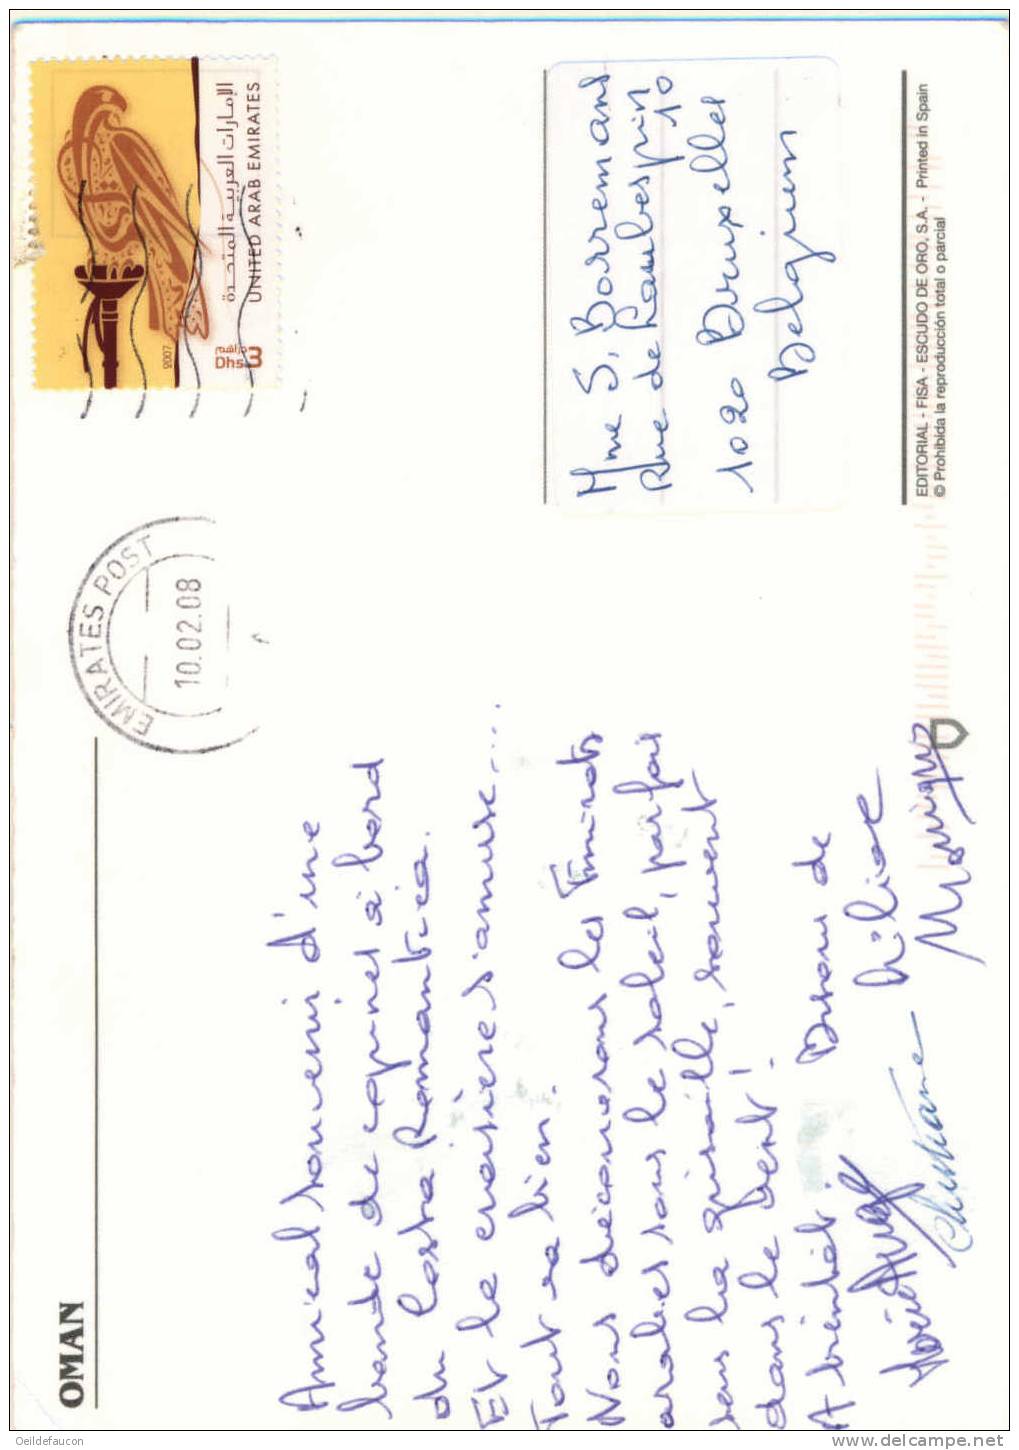 OMAN
Amical souvenir d'une
bande de copines à bord
du Costa Romantica.
Et la croisière s'amuse....
Tout va bien.
Nous découvrons les Emirats
arabes sous le soleil, parfois
sous la grisaille, souvent
dans le vent!
A bientôt. Bisous de
Liliane
Christiane
Monique
EMIRATES POST
10.02.08
الإمارات العربية المتحدة
UNITED ARAB EMIRATES
2007
دراهم
Dhs 3
Mme S. Borremans
Rue de Laubespin
10
1020 Bruxelles
Belgium
EDITORIAL - FISA - ESCUDO DE ORO, S.A. - Printed in Spain
© Prohibida la reproducción total o parcial
Oeildefaucon